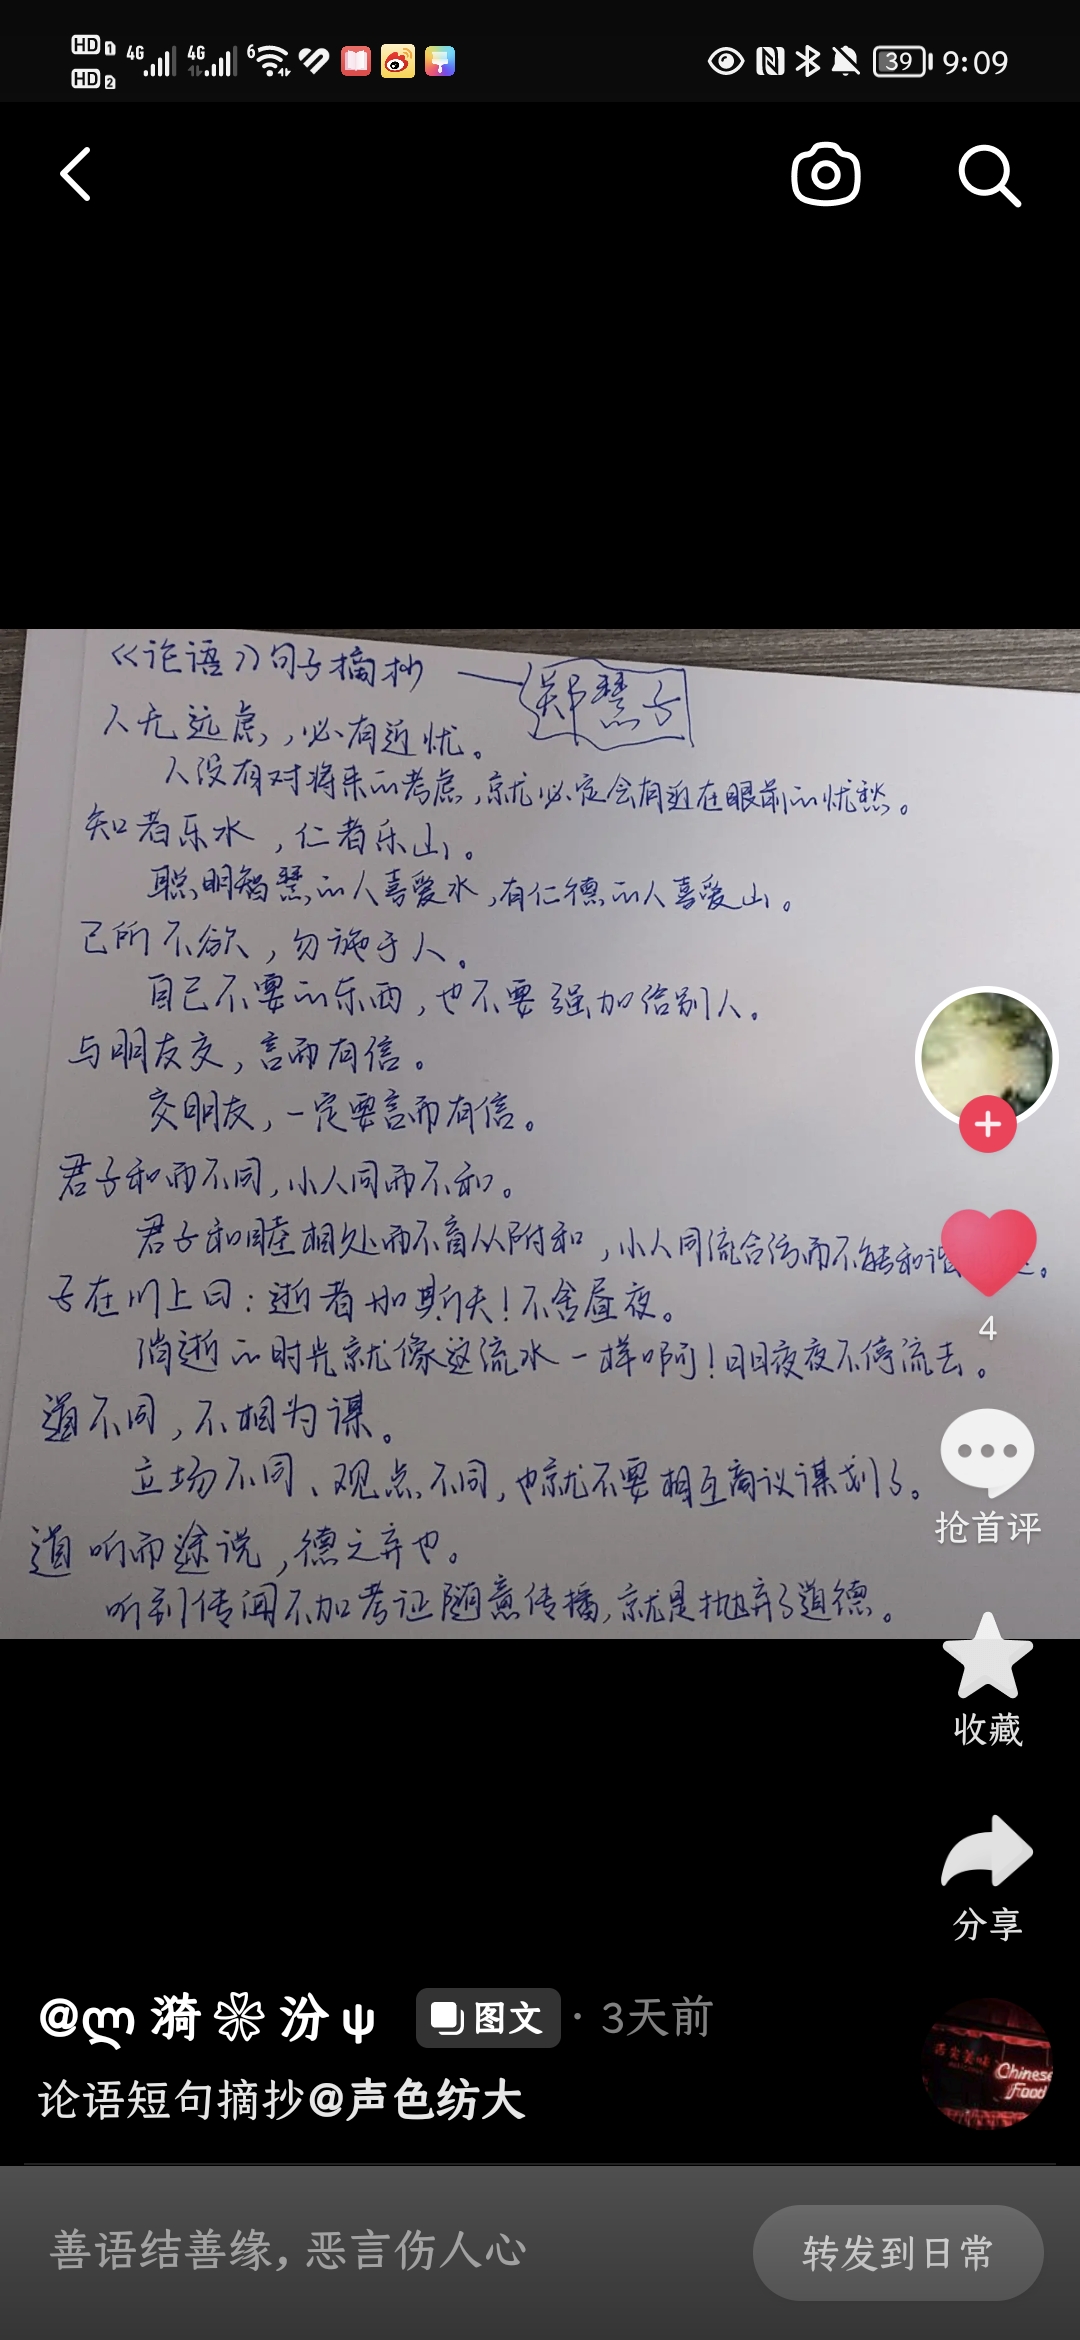 HD 1 4G 4G 6 39 9:09
HD 2
《论语》句子摘抄 — 郑慧子
人无远虑,必有近忧。
人没有对将来的考虑,就必定会有近在眼前的忧愁。
知者乐水,仁者乐山。
聪明智慧的人喜爱水,有仁德的人喜爱山。
己所不欲,勿施于人。
自己不要的东西,也不要强加给别人。
与朋友交,言而有信。
交朋友,一定要言而有信。
君子和而不同,小人同而不和。
君子和睦相处而不盲从附和,小人同流合污而不能和谐。
4
子在川上曰:逝者如斯夫!不舍昼夜。
消逝的时光就像这流水一样啊!日日夜夜不停流去。
道不同,不相为谋。
立场不同、观点不同,也就不要相互商议谋划了。
抢首评
道听而途说,德之弃也。
听到传闻不加考证随意传播,就是抛弃了道德。
收藏
分享
@ლ 漪 ꕥ 汾 ψ 图文 · 3天前
论语短句摘抄@声色纺大
Chinese
Food
善语结善缘,恶言伤人心
转发到日常